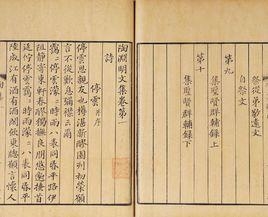 祭從弟敬遠文
自祭文
第九
集聖賢群輔錄上
第十
集聖賢群輔錄下
陶淵明文集卷第一
詩
停雲并序
停雲思親友也罇湛新醪園列初榮願
言不從歎息彌襟
靄停雲濛濛時雨八表同昏平路伊
阻靜寄東軒春醪獨撫良朋悠邈搔首
延佇停雲靄靄時雨濛濛八表同昏平
陸成江有酒有酒閒飲東窗願言懷人